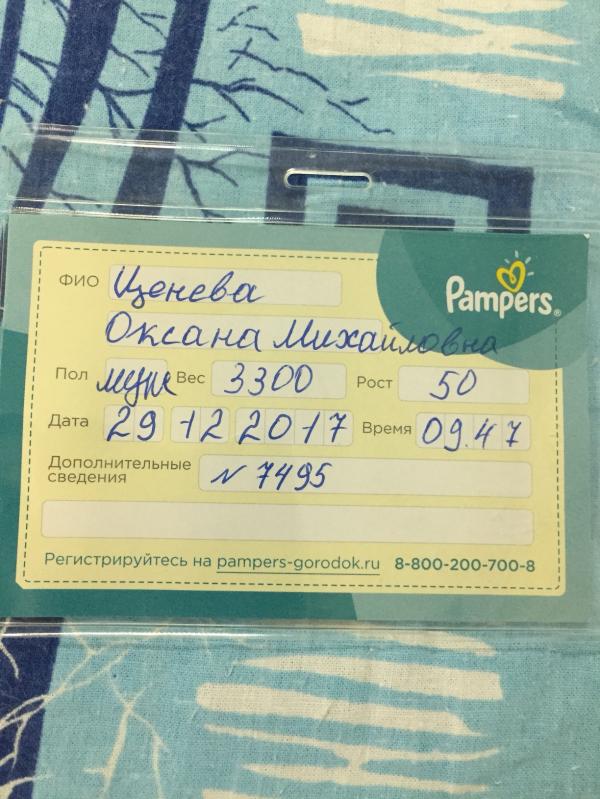 Pampers®
ФИО Щенева
Оксана Михайловна
Пол муж Вес 3300 Рост 50
Дата 29 12 2017 Время 09.47
Дополнительные
сведения N 7495
Регистрируйтесь на pampers-gorodok.ru 8-800-200-700-8